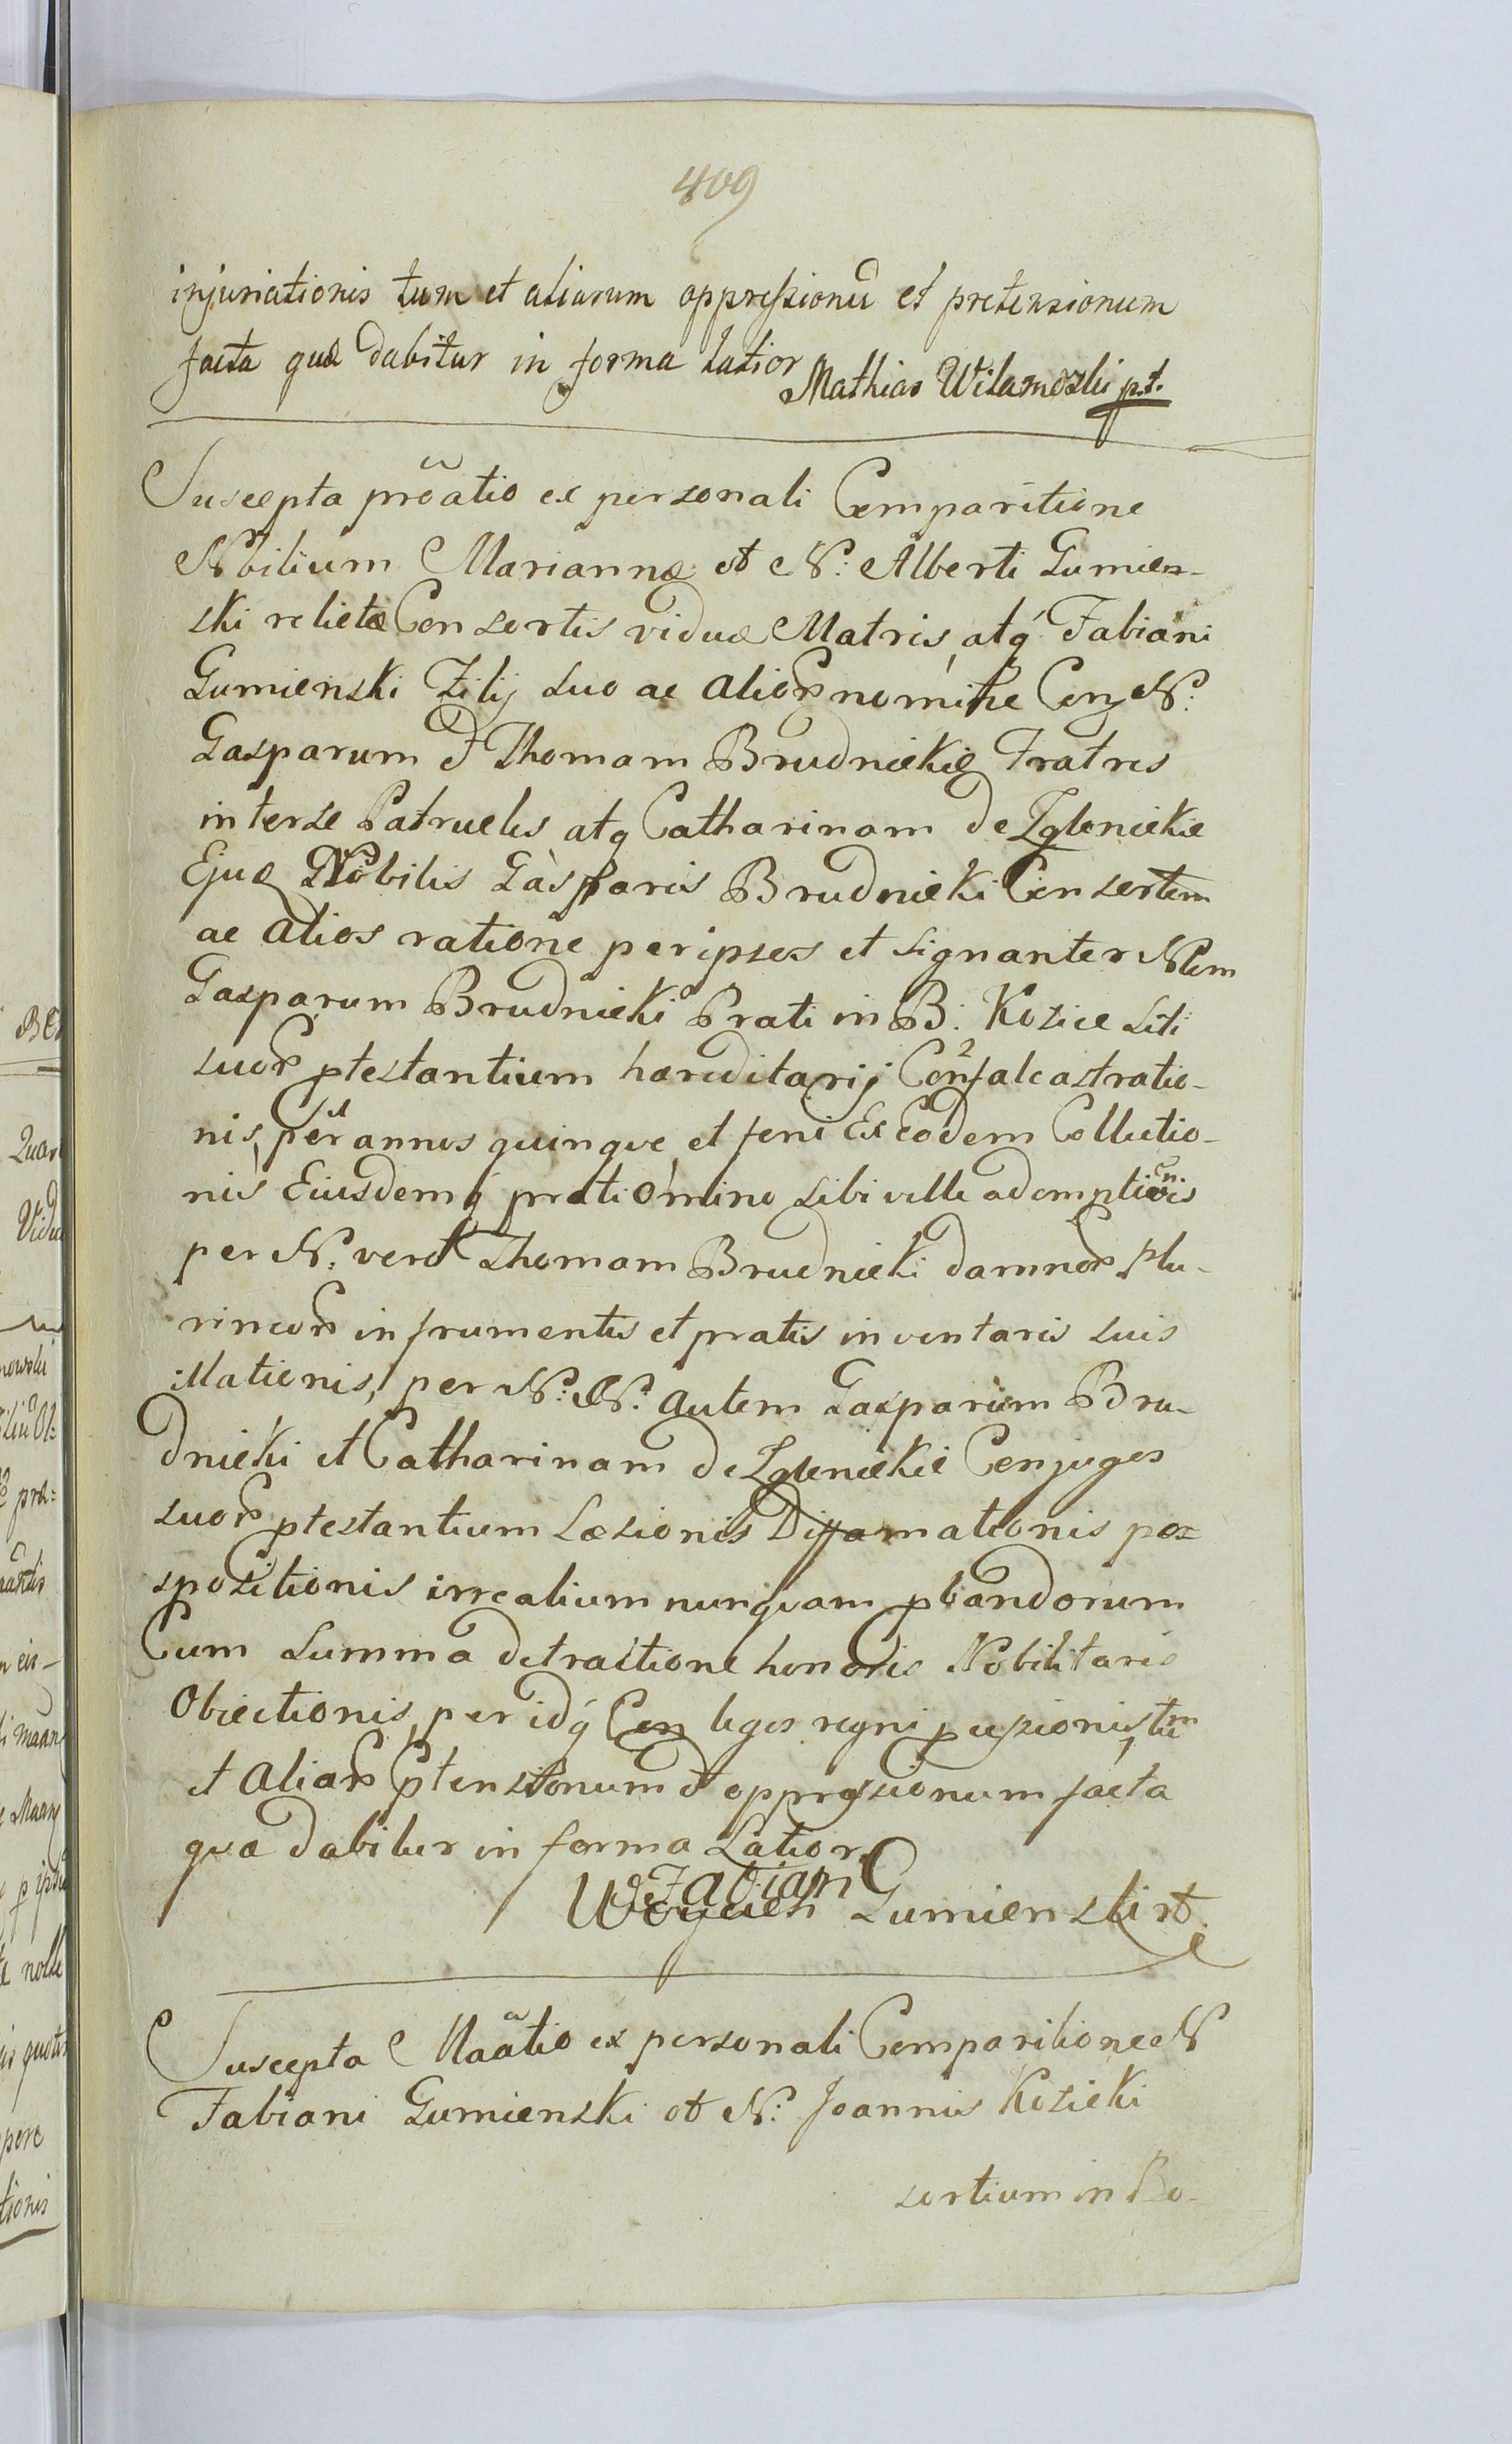 409
injuriationis tum et aliarum oppressionũ et pretensionum
facta quæ dabitur in forma latior
Mathias Wilamowski p.t.
Suscepta prõatio ex personali Comparitione
Nobilium Mariannæ et N: Alberti Gumien-
ski relictæ Consortis viduæ Matris, atq Fabiani
Gumienski Filij suo ac alior nomine Con N:
Gasparum et Thomam Brudnickie Fratres
interse Patrueles atq Catharinam de Zglenickie
Ejus Nobilis Gasparis Brudnicki Consortem
ac alios ratione peripsos et signanter Nlem
Gasparum Brudnicki Prati in B: Kozice siti
suor ptestantium hæreditarij Confalcastratio-
nis, per annos quinque et feni Ex Eodem Collectio-
nis Eiusdemq prati omino sibi velle ademptionis
per N: vero Thomam Brudnicki damnor plu-
rimor in frumentis et pratis inventaris suis
illationis, per N: N: autem Gasparum Bru-
dnicki et Catharinam de Zglenickie Conjuges
suor ptestantium Læsionis Diffamationis pos
spositionis irrealium nunquam pbandorum
Cum summa detractione honoris Nobilitaris
Obiectionis, per idq Con leges regni peusionis, tum
et aliar Ptensionum et oppressionum facta
quæ dabitur in forma Latior
Fabian
Woyciech Gumienski
Suscepta Maãtio ex personali Comparitione N
Fabiani Gumienski et N: Joannis Kozicki
sortium in Bo-